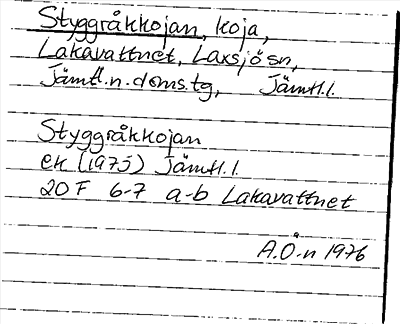 Styggråkkojan, koja,
Lakavattnet, Laxsjö sn,
Jämtl.n.doms.tg, Jämtl.l.
Styggråkkojan
ek (1975) Jämtl.l.
20 F 6-7 a-b Lakavattnet
A.Ö-n 1976